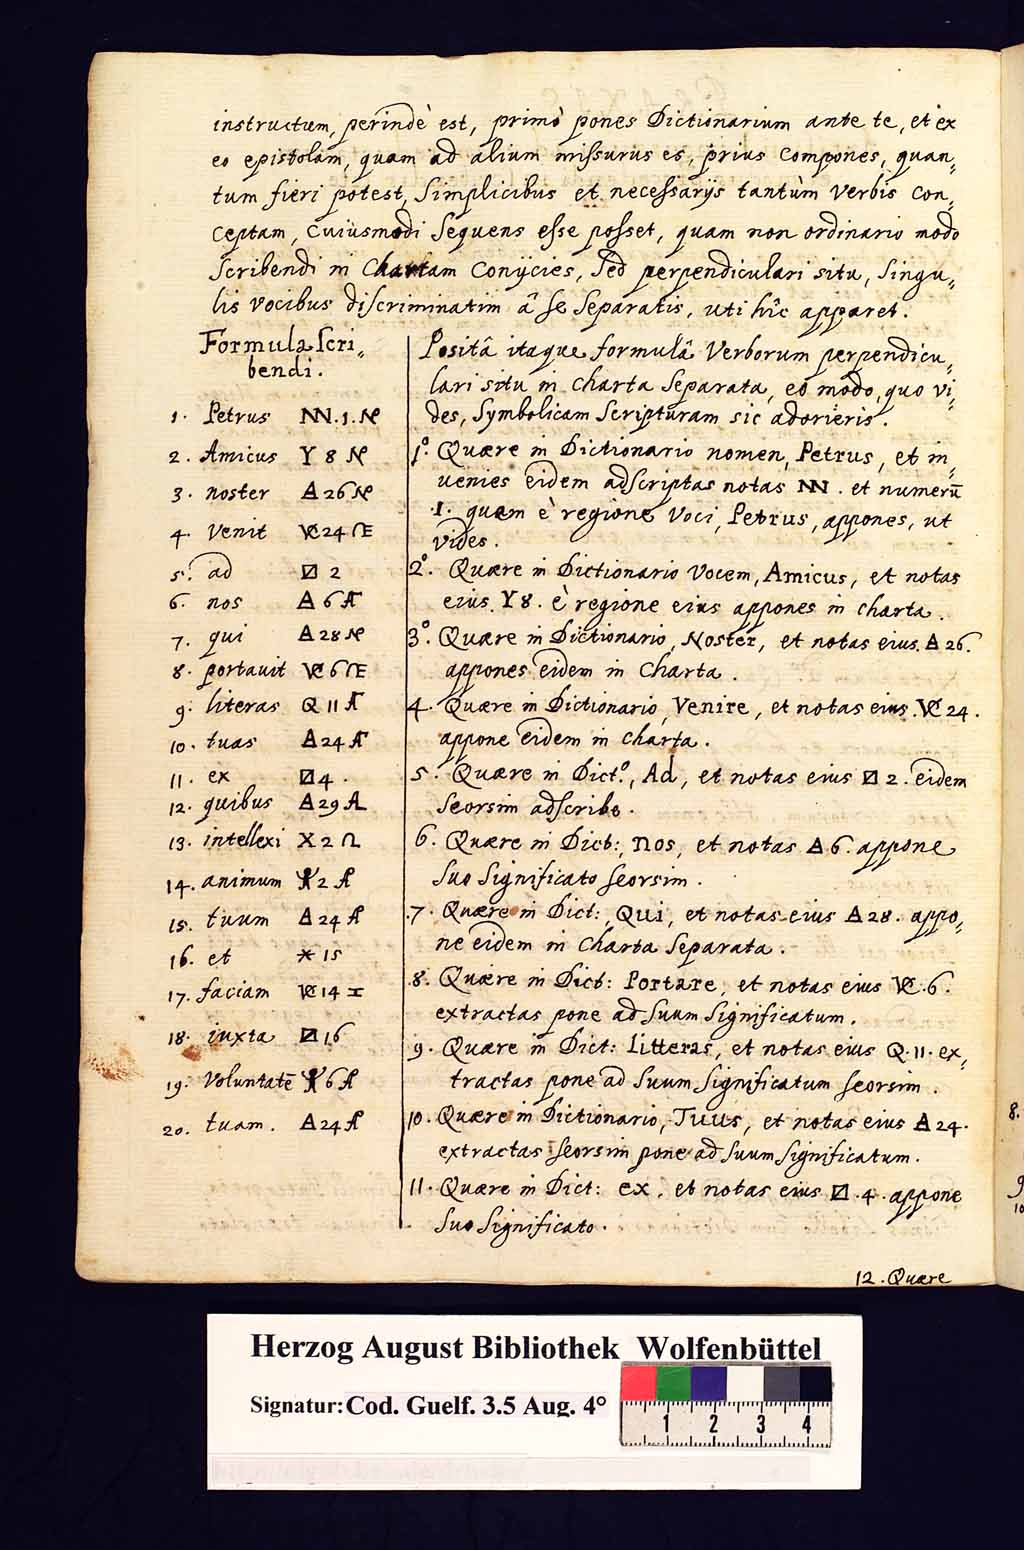 instructum, perindè est, primò pones Dictionarium ante te, et ex
eo epistolam, quam ad alium missurus es, prius compones, quan„
tum fieri potest, Simplicibus et necessarijs tantùm verbis con„
ceptam, cuiusmodi Sequens esse posset, quam non ordinario modo
Scribendi in Chartam Conijcies, Sed perpendiculari situ, Singu„
lis vocibus discriminatim â se Separatis, uti hîc apparet.
Formula Scri„
bendi.
1. Petrus 1.
2. Amicus Y 8
3. noster 26
4. Venit 24
5. ad 2
6. nos 6
7. qui 28
8. portauit 6
9. literas Q 11
10. tuas 24
11. ex 4.
12. quibus 29
13. intellexi X 2
14. animum 2
15. tuum 24
16. et * 15
17. faciam 14
18. iuxta 16
19. Voluntatē 6
20. tuam. 24
Positâ itaque formulâ Verborum perpendicu„
lari situ in charta Separata, eo modo, quo vi„
des, Symbolicam Scripturam sic adorieris.
1º. Quære in Dictionario nomen, Petrus, et in„
uenies eidem adscriptas notas . et numerū
.1. quam è regione voci, Petrus, appones, ut
vides.
2º. Quære in Dictionario Vocem, Amicus, et notas
eius. Y 8. è regione eius appones in charta.
3º. Quære in Dictionario, Noster, et notas eius. 26.
appones eidem in Charta.
4. Quære in Dictionario, Venire, et notas eius. 24.
appone eidem in charta.
5. Quære in Dict.º, Ad, et notas eius 2. eidem
seorsim adscribe.
6. Quære in Dict:, Nos, et notas 6. appone
Suo Significato seorsim.
.7. Quære in Dict:, Qui, et notas eius 28. appo„
ne eidem in Charta Separata.
.8. Quære in Dict: Portare, et notas eius .6.
extractas pone ad Suum Significatum.
9. Quære in Dict: Litteras, et notas eius Q.11. ex„
tractas pone ad Suum Significatum seorsim.
10. Quære in Dictionario, Tuus, et notas eius 24.
extractas seorsim pone ad Suum Significatum.
11. Quære in Dict: ex, et notas eius .4. appone
Suo Significato.
12. Quære
8.
9
10
Herzog August Bibliothek Wolfenbüttel
Signatur: Cod. Guelf. 3.5 Aug. 4°
1 2 3 4